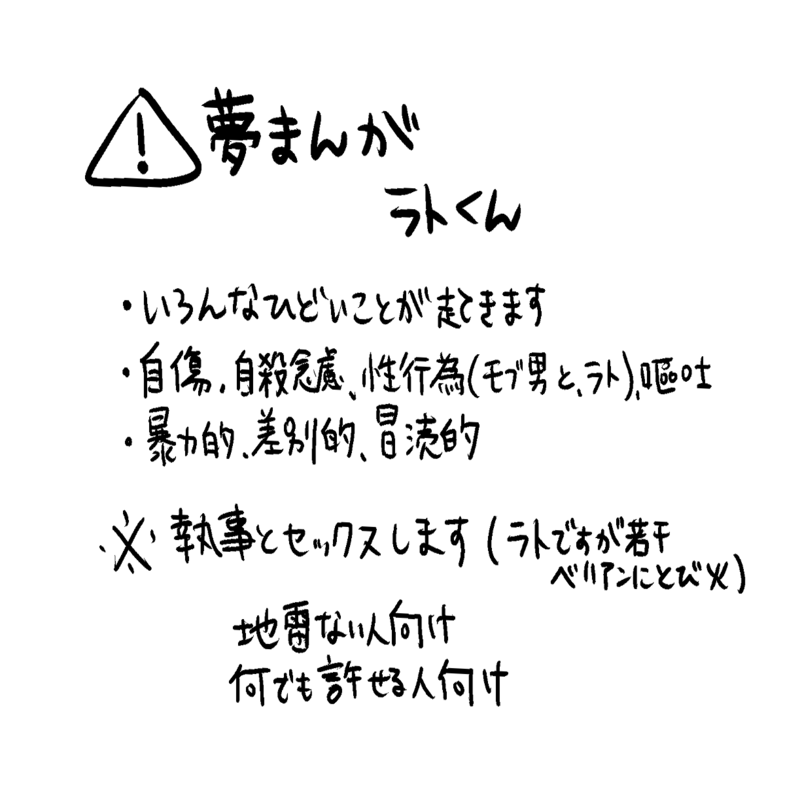 夢まんが
ラトくん
・いろんなひどいことが起きます
・自傷、自殺念慮、性行為(モブ男と、ラト)、嘔吐
・暴力的、差別的、冒涜的
※執事とセックスします(ラトですが若干
ベリアンにとび火)
地雷ない人向け
何でも許せる人向け